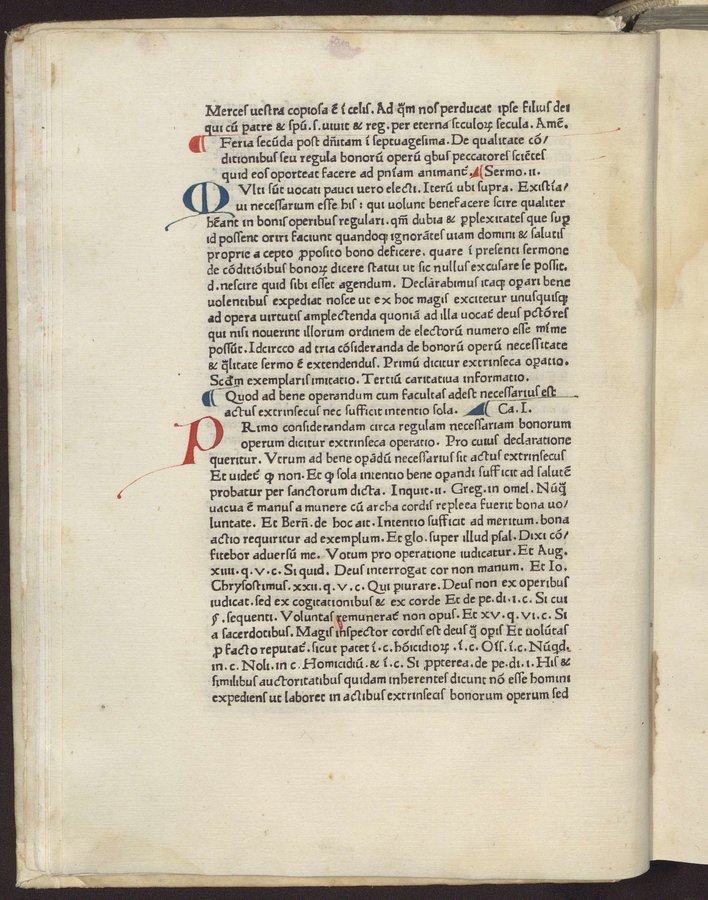 Merces uestra copiosa ē ī celis. Ad q̄m nos perducat ipse filius dei
qui cū patre & spū.s.uiuit & reg.per eterna seculoꝝ secula. Amē.
Feria secūda post dn̄icam ī septuagesima. De qualitate cō/
ditionibus seu regula bonorū operū qbus peccatores sciētes
quid eos oporteat facere ad pn̄iam animant̄. Sermo.ii.
MVlti sūt uocati pauci uero electi. Iterū ubi supra. Existīa/
ui necessarium esse his: qui uolunt benefacere scire qualiter
hēant in bonis operibus regulari.qm̄ dubia & ꝑplexitates que suꝑ
id possent oriri faciunt quandoqꝫ ignorātes uiam domini & salutis
proprie a cepto ꝓposito bono deficere. quare ī presenti sermone
de cōditiōibus bonoꝝ dicere statui ut sic nullus excusare se possit.
d.nescire quid sibi esset agendum. Declārabimus itaqꝫ oꝑari bene
uolentibus expediat nosce ut ex hoc magis excitetur unusquisqꝫ
ad opera uirtutis amplectenda quoniā ad illa uocat̄ deus pctōres
qui nisi nouerint illorum ordinem de electorū numero esse mīme
possūt. Idcircco ad tria cōsideranda de bonorū operū necessitate
& q̄litate sermo ē extendendus. Primū dicitur extrinseca oꝑatio.
Scd̄m exemplaris imitatio. Tertiū caritatiua informatio.
Quod ad bene operandum cum facultas adest necessarius est
actus extrinsecus nec sufficit intentio sola. Ca.I.
PRimo considerandam circa regulam necessariam bonorum
operum dicitur extrinseca operatio. Pro cuius declaratione
queritur. Vtrum ad bene oꝑādū necessarius sit actus extrinsecus
Et uidet̄ ꝙ non. Et ꝙ sola intentio bene oꝑandi sufficit ad salutē
probatur per sanctorum dicta. Inquit.ii. Greg.in omel. Nūq̄
uacua ē manus a munere cū archa cordis repleta fuerit bona uo/
luntate. Et Berñ.de hoc ait. Intentio sufficit ad meritum.bona
actio requiritur ad exemplum. Et glo.super illud psal. Dixi cō/
fitebor aduersū me. Votum pro operatione iudicatur. Et Aug.
xiiii.q.v.c. Si quid. Deus interrogat cor non manum. Et Io.
Chrysostimus.xxii.q.v.c. Qui ꝑiurare. Deus non ex operibus
iudicat.sed ex cogitationibus & ex corde Et de pe.di.i.c. Si cui
§.sequenti. Voluntas remunerat̄ non opus. Et xv.q.vi.c. Si
a sacerdotibus. Magis inspector cordis est deus q̄ opis Et uolūtas
ꝓ facto reputat̄.sicut patet ī.c.hōicidioꝝ.ī.c. Ofs.ī.c. Nūqd.
in.c. Noli.in c. Homicidiū.& ī.c. Si ꝓpterea.de pe.di.i. His &
similibus auctoritatibus quidam inherentes dicunt nō esse homini
expediens ut laboret in actibus extrinsecis bonorum operum sed